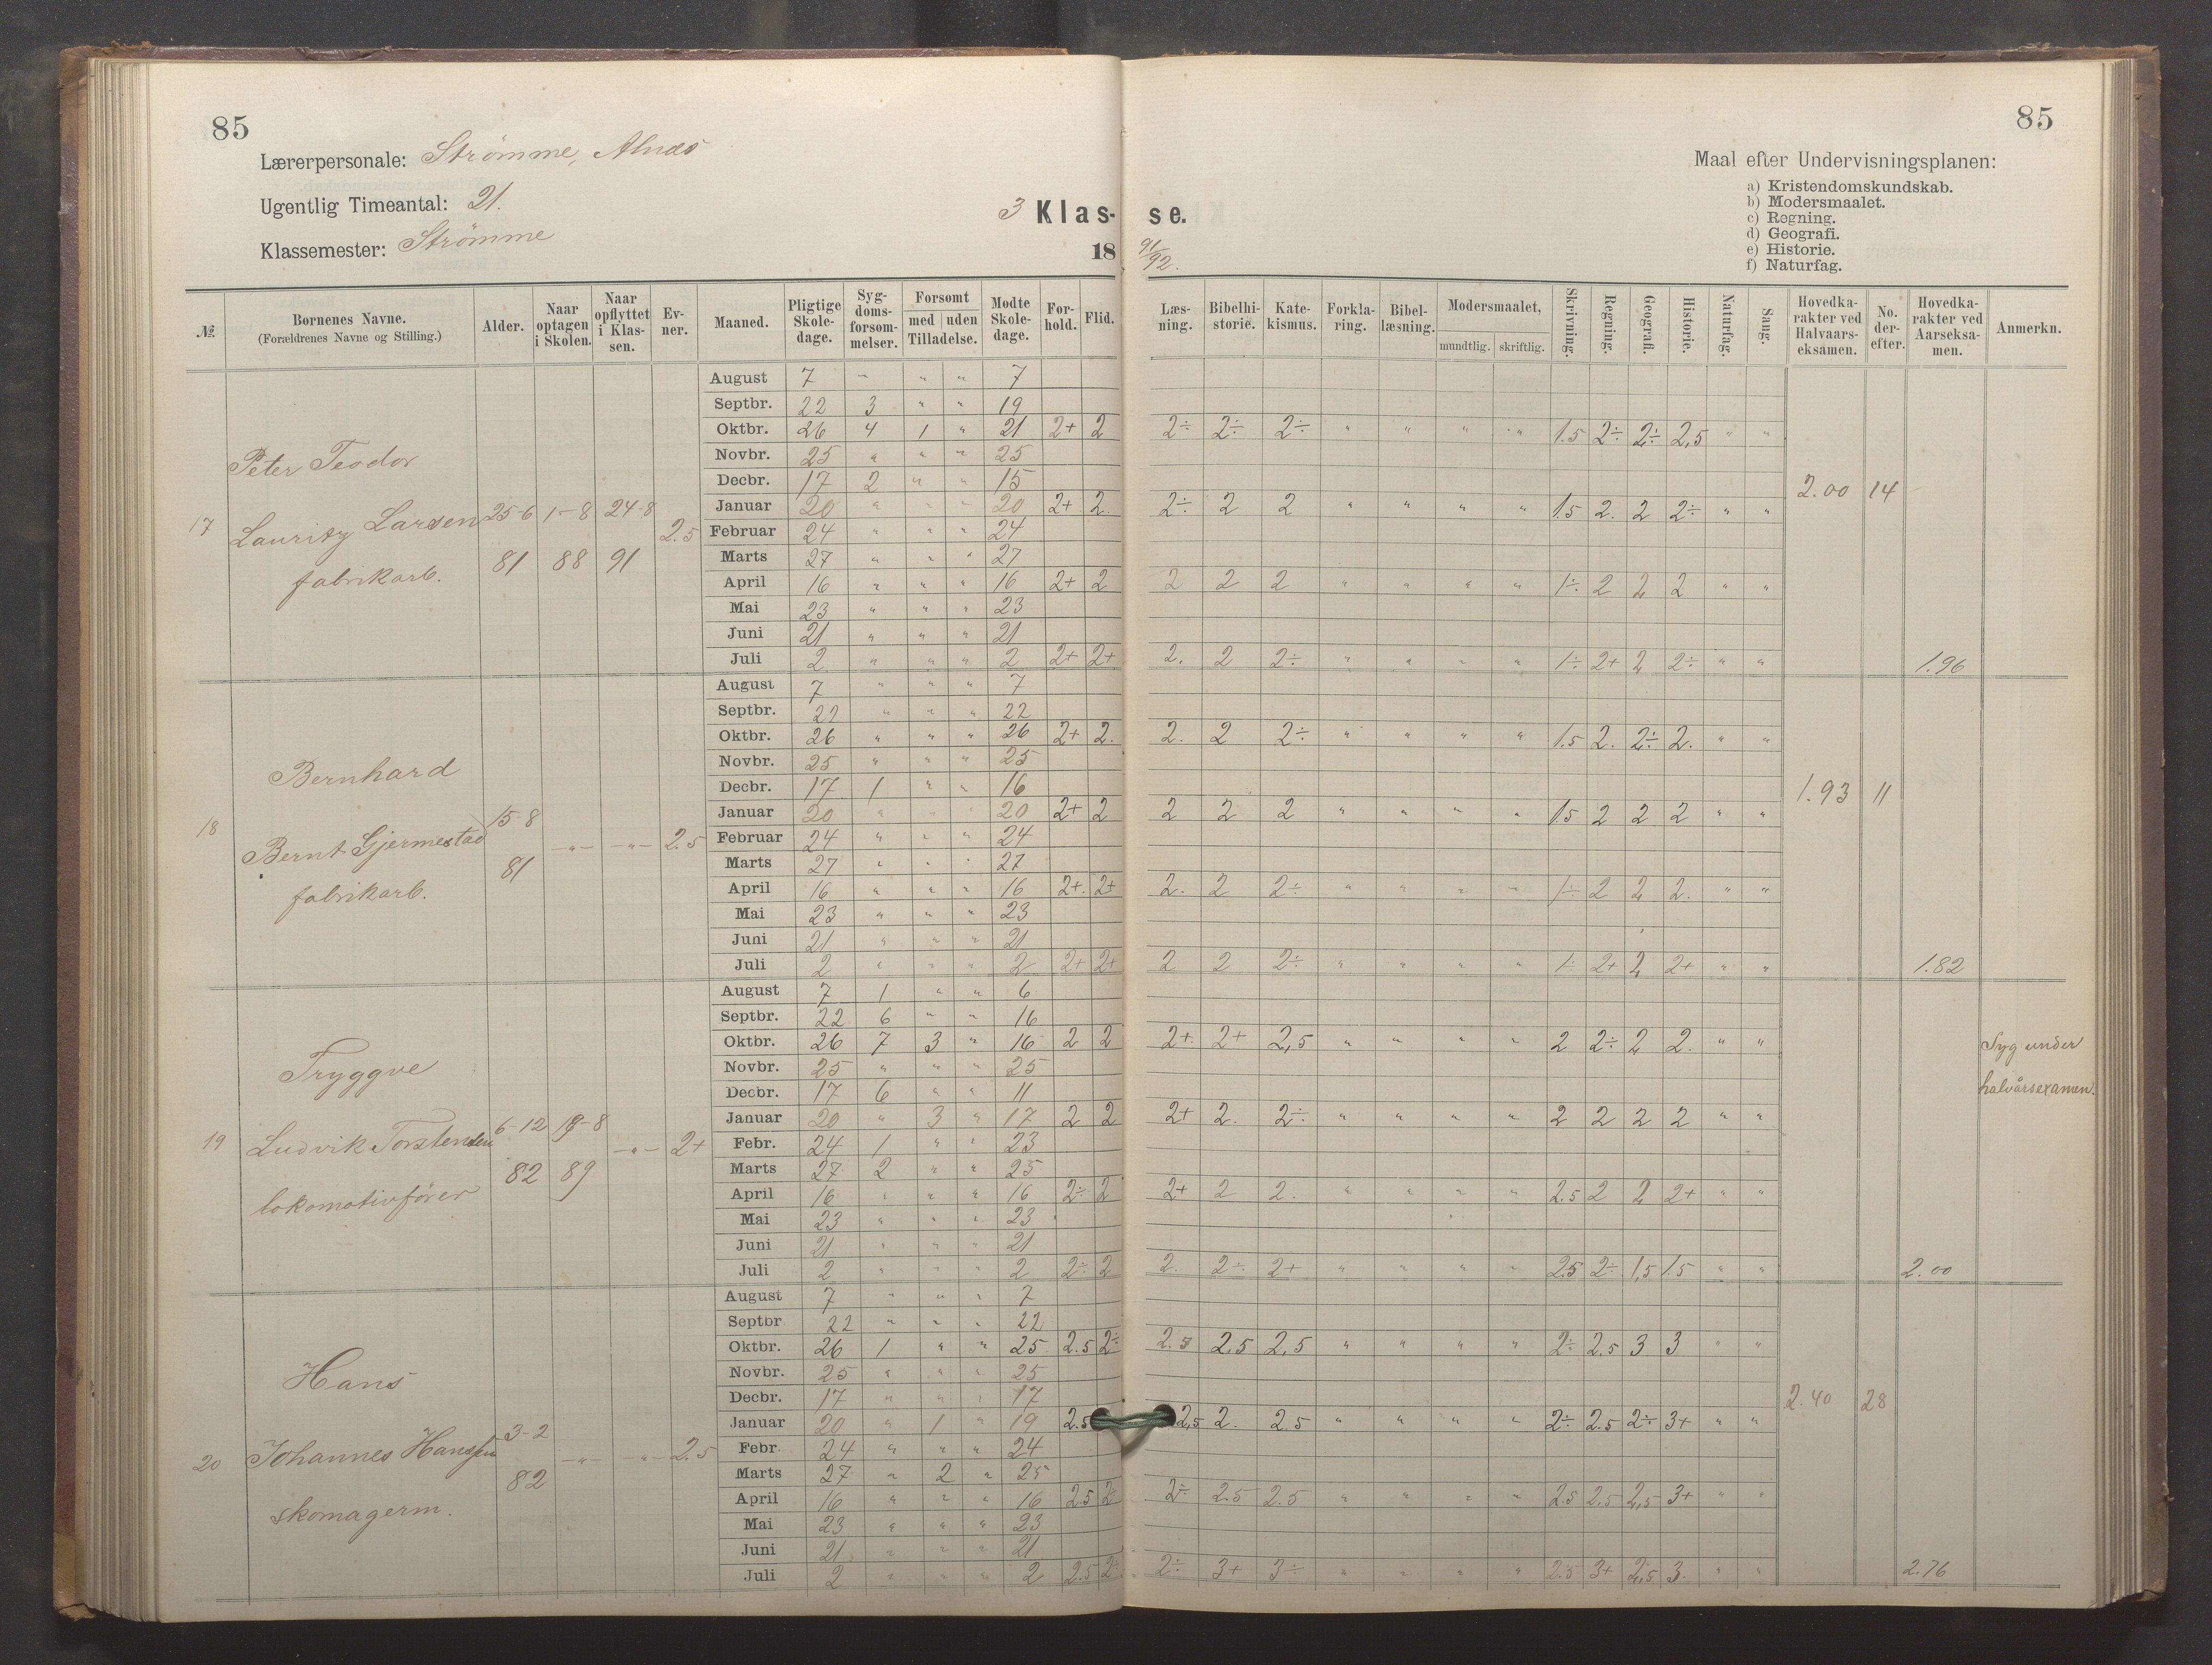 85
85
Lærerpersonale: Strømme, Alnæs
Maal efter Undervisningsplanen:
Ugentlig Timeantal: 21.
a) Kristendomskundskab.
b) Modersmaalet.
c) Regning.
d) Geografi.
e) Historie.
f) Naturfag.
3 Klas- se.
Klassemester: Strømme
18 91/92.
№ Børnenes Navne. (Forældrenes Navne og Stilling.) Alder. Naar optagen i Skolen. Naar opflyttet i Klassen. Ev-ner. Maaned. Pligtige Skole-dage. Syg-doms-forsøm-melser. Forsømt med uden Tilladelse. Mødte Skole-dage. For-hold. Flid. Læs-ning. Bibelhi-storie. Kate-kismus. Forkla-ring. Bibel-læsning. Modersmaalet, mundtlig. skriftlig. Skrivning. Regning. Geografi. Historie. Naturfag. Sang. Hovedka-rakter ved Halvaars-eksamen. No. der-efter. Hovedka-rakter ved Aarseksa-men. Anmerkn.
17 Peter Teodor
Lauritz Larsen
fabrikarb.
25-6 81 1-8 88 24-8 91 2.5
August 7 " " " 7
Septbr. 22 3 " " 19
Oktbr. 26 4 1 " 21 2+ 2 2÷ 2÷ 2÷ " " " " 1.5 2÷ 2÷ 2,5 " "
Novbr. 25 " " " 25
Decbr. 17 2 " " 15
Januar 20 " " " 20 2+ 2. 2÷ 2 2 " " " " 1.5 2. 2 2÷ " " 2.00 14
Februar 24 " " " 24
Marts 27 " " " 27
April 16 " " " 16 2+ 2 2 2 2 " " " " 1÷ 2 2 2 " "
Mai 23 " " " 23
Juni 21 " " " 21
Juli 2 " " " 2 2+ 2+ 2. 2 2÷ " " " " 1÷ 2+ 2 2÷ " " 1.96
18 Bernhard
Bernt Gjermestad
fabrikarb.
15-8 81 -"- -"- 2.5
August 7 " " " 7
Septbr. 22 " " " 22
Oktbr. 26 " " " 26 2+ 2. 2. 2 2÷ " " " " 1.5 2. 2÷ 2. " "
Novbr. 25 " " " 25
Decbr. 17 1 " " 16
Januar 20 " " " 20 2+ 2 2 2 2 " " " " 1.5 2 2 2 " " 1.93 11
Februar 24 " " " 24
Marts 27 " " " 27
April 16 " " " 16 2+. 2+ 2. 2 2÷ " " " " 1÷ 2 2 2. " "
Mai 23 " " " 23
Juni 21 " " " 21
Juli 2 " " " 2 2+ 2+ 2 2 2÷ " " " " 1÷ 2+ 2 2+ " " 1.82
19 Tryggve
Ludvik Torstensen
lokomotivfører
6-12 82 89 -"- 2+
August 7 1 " " 6
Septbr. 22 6 " " 16
Oktbr. 26 7 3 " 16 2 2 2+ 2+ 2,5 " " " " 2 2÷ 2 2. " " Syg under
Novbr. 25 " " " 25
halvårsexamen.
Decbr. 17 6 " " 11
Januar 20 " 3 " 17 2 2 2+ 2. 2÷ " " " " 2 2 2 2 " "
Febr. 24 1 " " 23
Marts 27 2 " " 25
April 16 " " " 16 2÷ 2 2+ 2 2. " " " " 2.5 2 2 2+ " "
Mai 23 " " " 23
Juni 21 " " " 21
Juli 2 " " " 2 2÷ 2 2. 2÷ 2+ " " " " 2.5 2÷ 1,5 1.5 " " 2.00
20 Hans
Johannes Hanssen
skomagerm.
3-2 82 -"- -"- 2.5
August 7 " " " 7
Septbr 22 " " " 22
Oktbr. 26 1 " " 25 2.5 2÷ 2.5 2,5 2,5 " " " " 2÷ 2.5 3 3 " "
Novbr. 25 " " " 25
Decbr. 17 " " " 17
Januar 20 " 1 " 19 2.5 2,5 2. 2.5 " " " " 2÷ 2.5 2÷ 3+ " " 2.40 28
Febr. 24 " " " 24
Marts 27 " 2 " 25
April 16 " " " 16 2.5 2÷ 2÷ 2.5 2.5 " " " " 2.5 2.5 2,5 3+ " "
Mai 23 " " " 23
Juni 21 " " " 21
Juli 2 " " " 2 2.5 2÷ 2÷ 3+ 3÷ " " " " 2.5 3+ 2,5 3. " " 2.76